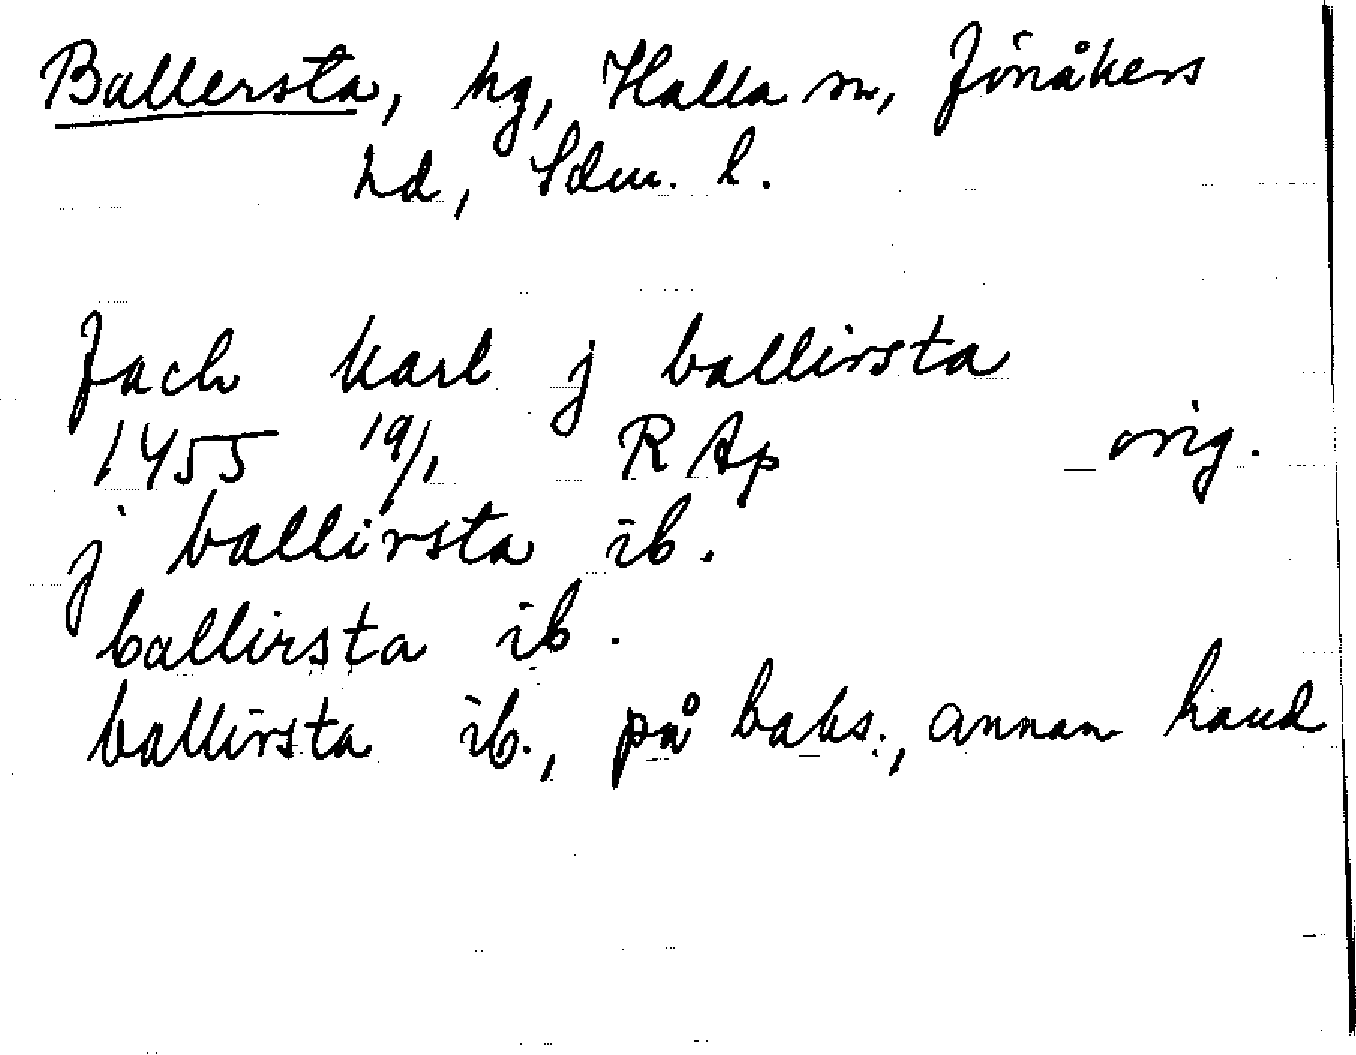 Ballersta, hg, Halla sn, Jönåkers
hd, Sdm. l.
Jach karl j ballirsta
1455 19/1 RAp orig.
j ballirsta ib.
ballirsta ib.
ballirsta ib., på baks., annan hand